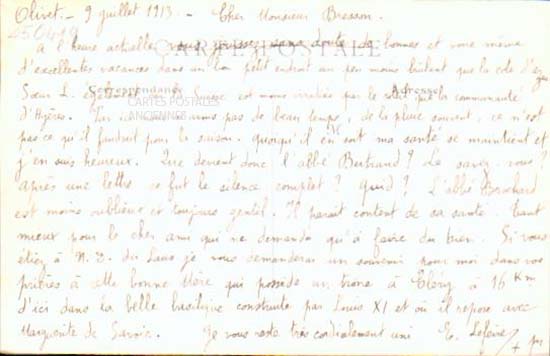 Olivet. - 9 juillet 1913. - Cher Monsieur Bresson.
CARTE POSTALE
A l'heure actuelle vous passez sans doute de bonnes et vous même
d'excellentes vacances dans un bon petit endroit un peu moins brûlant que la côte d'azur
Correspondance
Adresse
Sœur L. est moins irritée par le soleil que la communauté
CARTES POSTALES
ANCIENNES
d'Hyères. pas de beau temps, de la pluie souvent, ce n'est
pas ce qu'il faudrait pour la saison. quoiqu'il en soit ma santé se maintient et
j'en suis heureux. Que devient donc l'abbé Bertrand? Le savez-vous?
après une lettre ce fut le silence complet? quid? L'abbé Brochard
est moins oublieux et toujours gentil. Il paraît content de sa santé. tant
mieux pour le cher ami qui ne demande qu'à faire du bien. Si vous
étiez à N. D. du Laus je vous demanderai un souvenir pour moi dans vos
prières à cette bonne Mère qui possède un trône à Cléry à 16 Km
d'ici dans la belle basilique construite par Louis XI et où il repose avec
Marguerite de Savoie. Je vous reste très cordialement uni E.